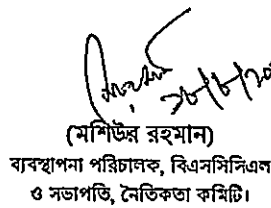 (মশিউর রহমান)
ব্যবস্থাপনা পরিচালক, বিএসসিসিএল
ও সভাপতি, নৈতিকতা কমিটি।